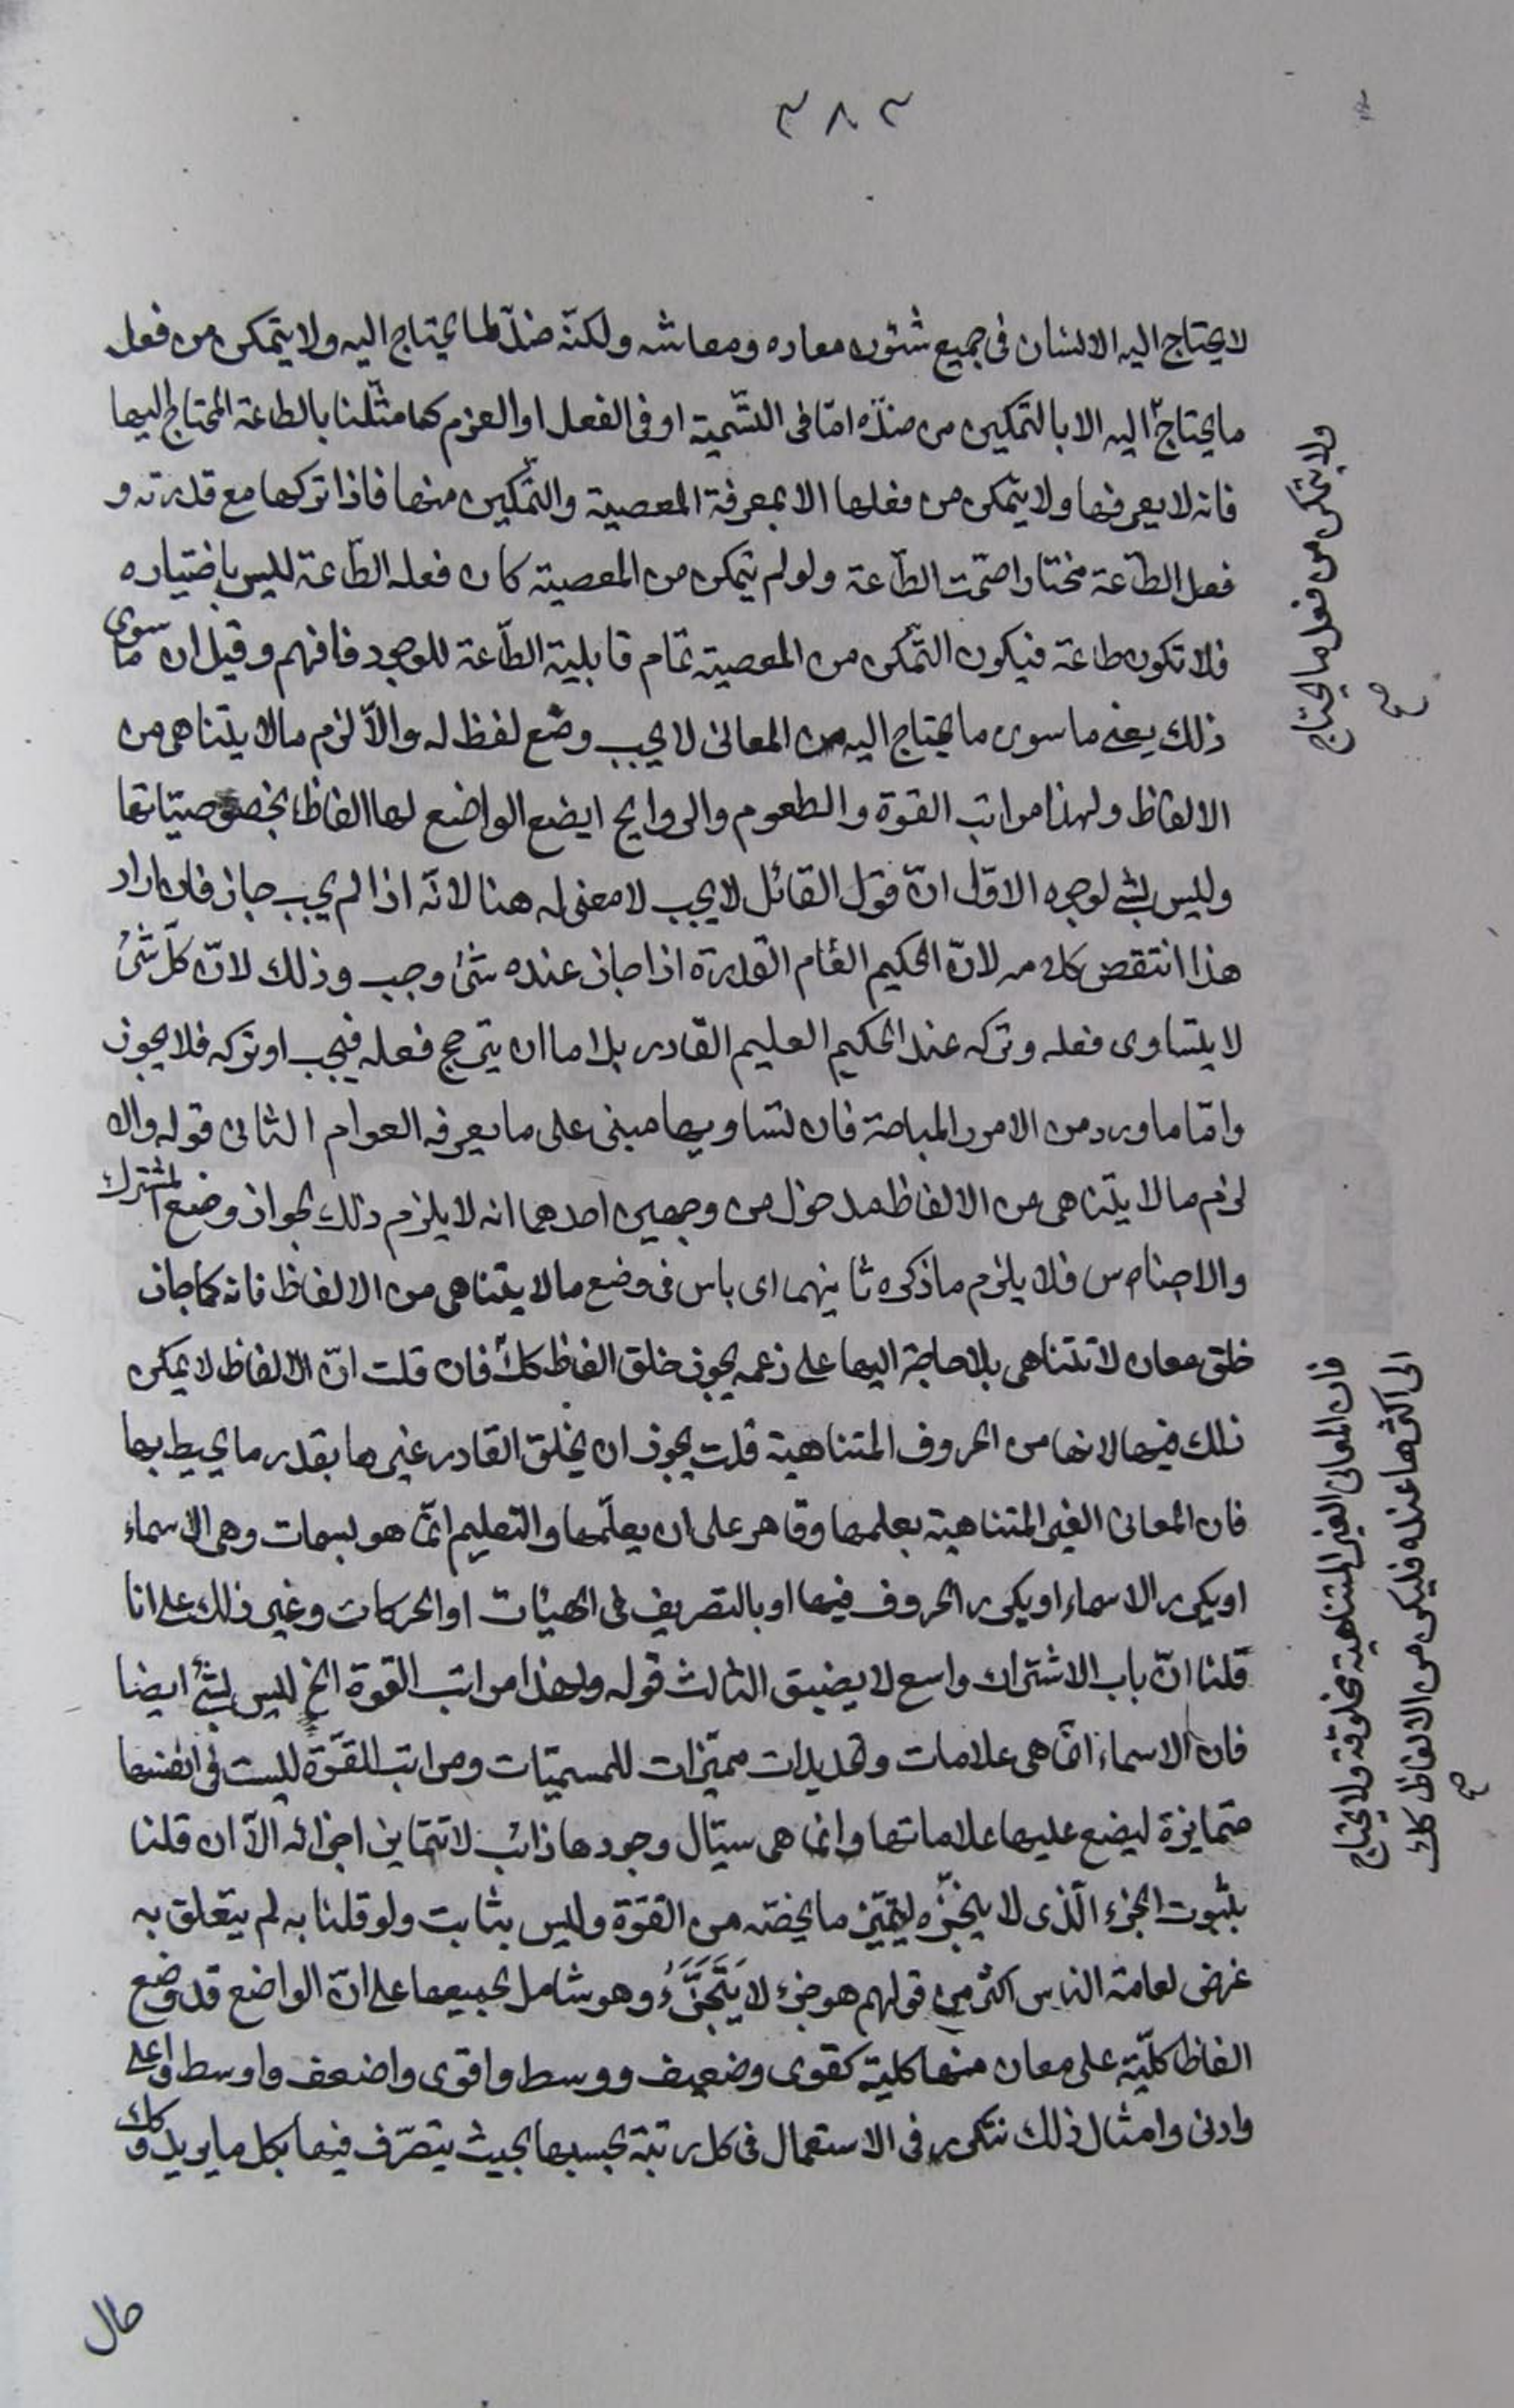 ٣٨٣
لا يحتاج اليه الانسان فى جميع شئون معاده ومعاشه ولكنّه ضدّ لما يحتاج اليه ولا يتمكن من فعل
ما يحتاج اليه الا بالتمكين من ضدّه امّا فى التسّمية او فى الفعل او العزم كما مثّلنا بالطاعة المحتاج اليها
فانه لا يعرفها ولا يتمكن من فعلها الا بمعرفة المعصية والتّمكين منها فاذا تركها مع قدرته و
فعل الطاعة مختارا صحّت الطّاعة ولو لم يتمكن من المعصية كان فعله الطّاعة لليس باختياره
فلا تكون طاعة فيكون التّمكن من المعصية تمام قابلية الطّاعة للوجود فافهم وقيل ان ما سوى
ذلك يعنى ما سوى ما يحتاج اليه من المعانى لا يجب وضع لفظ له والّا لزم ما لا يتناهى من
الالفاظ ولهذا مراتب القوة والطعوم والروايح ايضع الواضع لها الفاظا بخصوصيّاتها
وليس بشئ لوجوه الاوّل انّ قول القائل لا يجب لا معنى له هنا لانّه اذا لم يجب جاز فان اراد
هذا انتقض كلامه لانّ الحكيم العّام القدرة اذا جاز عنده شئ وجب وذلك لانّ كلّ شئ
لا يتساوى فعله وتركه عند الحكيم العليم القادر بل اما ان يترجح فعله فيجب او تركه فلا يجوز
وامّا ما ورد من الامور المباحة فان تساويها مبنى على ما يعرفه العوام الثانى قوله والا
لزم ما لا يتناهى من الالفاظ مدخول من وجهين احدهما انه لا يلزم ذلك لجواز وضع المشترك
والاجناس فلا يلزم ما ذكره ثانيهما اى باس فى وضع ما لا يتناهى من الالفاظ فانه كما جاز
خلق معان لا تتناهى بلا حاجة اليها على زعمه يجوز خلق الفاظ كك فان قلت انّ الالفاظ لا يمكن
ذلك فيها لانها من الحروف المتناهية قلت يجوز ان يخلق القادر غيرها بقدر ما يحيط بها
فان المعانى الغير المتناهية يعلمها وقاهر على ان يعلّمها والتعليم انّما هو بسمات وهى الاسماء
او يكرر الاسماء او يكرر الحروف فيها او بالتصريف فى الهيئات او الحركات وغير ذلك على انا
قلنا انّ باب الاشتراك واسع لا يضيق الثالث قوله ولهذا مراتب القوة الخ لليس بشئ ايضا
فان الاسماء انّما هى علامات وتحديدات مميّزات للمسميّات ومراتب القوّة ليست فى انفسها
متمايزة ليضع عليها علاماتها وانما هى سيّال وجودها ذائب لا تتمايز اجزائه الّا ان قلنا
بثبوت الجزء الّذى لا يتجزّء ليتميّز ما يخصّه من القوّة وليس بثابت ولو قلنا به لم يتعلق به
غرض لعامة الناس اكثر من قولهم هو جزء لا يَتَجَزَّءُ وهو شامل لجميعها على انّ الواضع قد وضع
الفاظا كليّة على معان منها كلية كقوى وضعيف ووسط واقوى واضعف واوسط واعلى
وادنى وامثال ذلك تتكرر فى الاستعمال فى كل رتبة بحسبها بحيث يتصرّف فيها بكل ما يريد وكك
ولا يتمكن من فعل ما يحتاج
صح
فان المعانى الغير المتناهية مخلوقة ولا يحتاج
الى اكثرها عنده فليكن من الالفاظ كك
صح